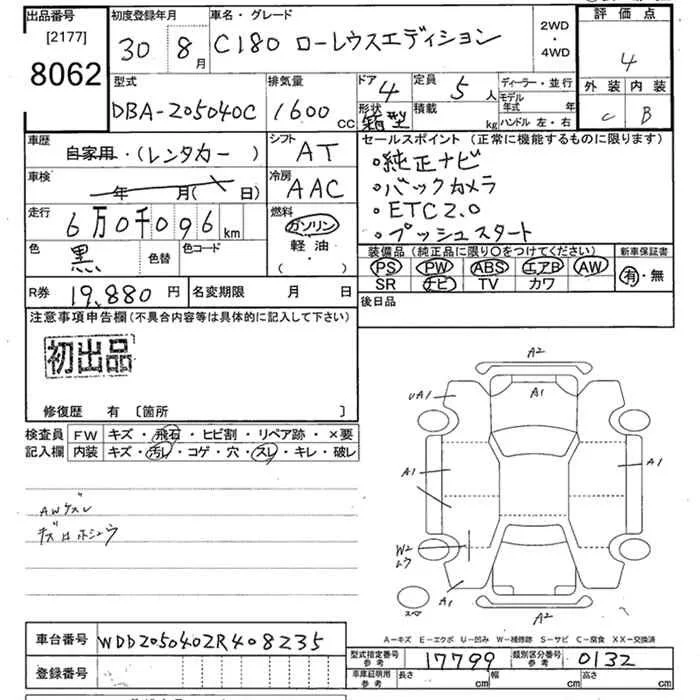 出品番号 初度登録年月 車名・グレード 2WD ・ 4WD 評価点
[2177]
8062 30 8月 C180 ローレウスエディション 4
型式 排気量 ドア 4 定員 5人 ディーラー・並行 外装 内装
DBA-205040C 1600cc 形状 箱型 積載 kg モデル年式 年 ハンドル 左・右 C B
車歴 自家用・(レンタカー) シフト AT セールスポイント (正常に機能するものに限ります)
車検 年 月( 日) 冷房 AAC
・純正ナビ
・バックカメラ
・ETC2.0
・プッシュスタート
走行 6万0千096km 燃料 ガソリン 軽油・ ( ・ )
色 黒 色替 色コード
装備品 (純正品に限り○をつけてください) 新車保証書
PS PW ABS エアB AW 有・無
SR ナビ TV カワ
R券 19,880円 名変期限 月 日 後日品
注意事項申告欄(不具合内容等は具体的に記入して下さい)
初出品
修復歴 有 [箇所 ]
検査員 FW キズ・飛石・ヒビ割・リペア跡・×要
記入欄 内装 キズ・汚レ・コゲ・穴・スレ・キレ・破レ
AWケズレ
キズ
A2
UA1 A1
A1 A1
W2
A1 A2
スペア
A-キズ E-エクボ U-凹み W-補修跡 S-サビ C-腐食 XX-交換済
車台番号 WDD2050402R408235
型式指定番号 参考 17799 類別区分番号 参考 0132
登録番号 車庫証明用 参考 長さ cm 幅 cm 高さ cm